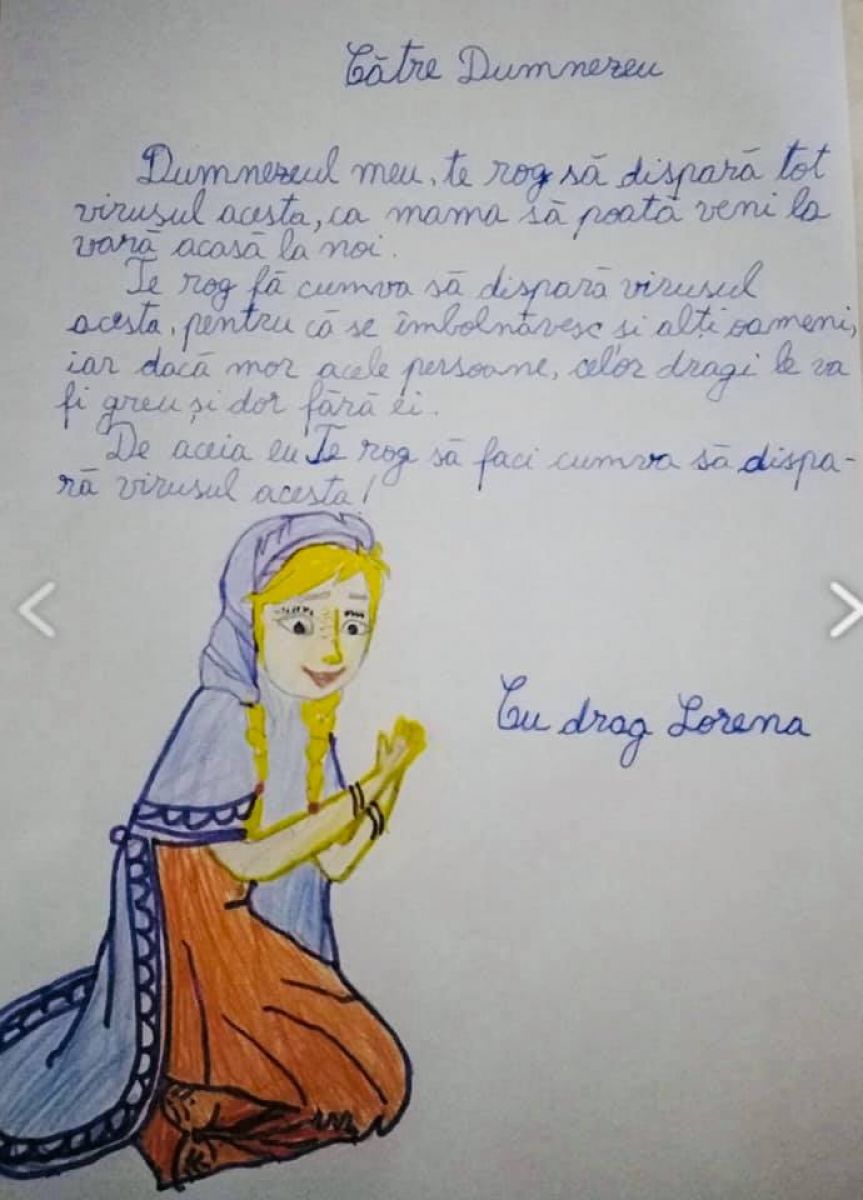 Către Dumnezeu
Dumnezeul meu, te rog să dispară tot
virusul acesta, ca mama să poată veni la
vară acasă la noi.
Te rog fă cumva să dispară virusul
acesta, pentru că se îmbolnăvesc si alți oameni,
iar dacă mor acele persoane, celor dragi le va
fi greu și dor fără ei.
De aceia eu Te rog să faci cumva să dispa-
ră virusul acesta!
Cu drag Lorena